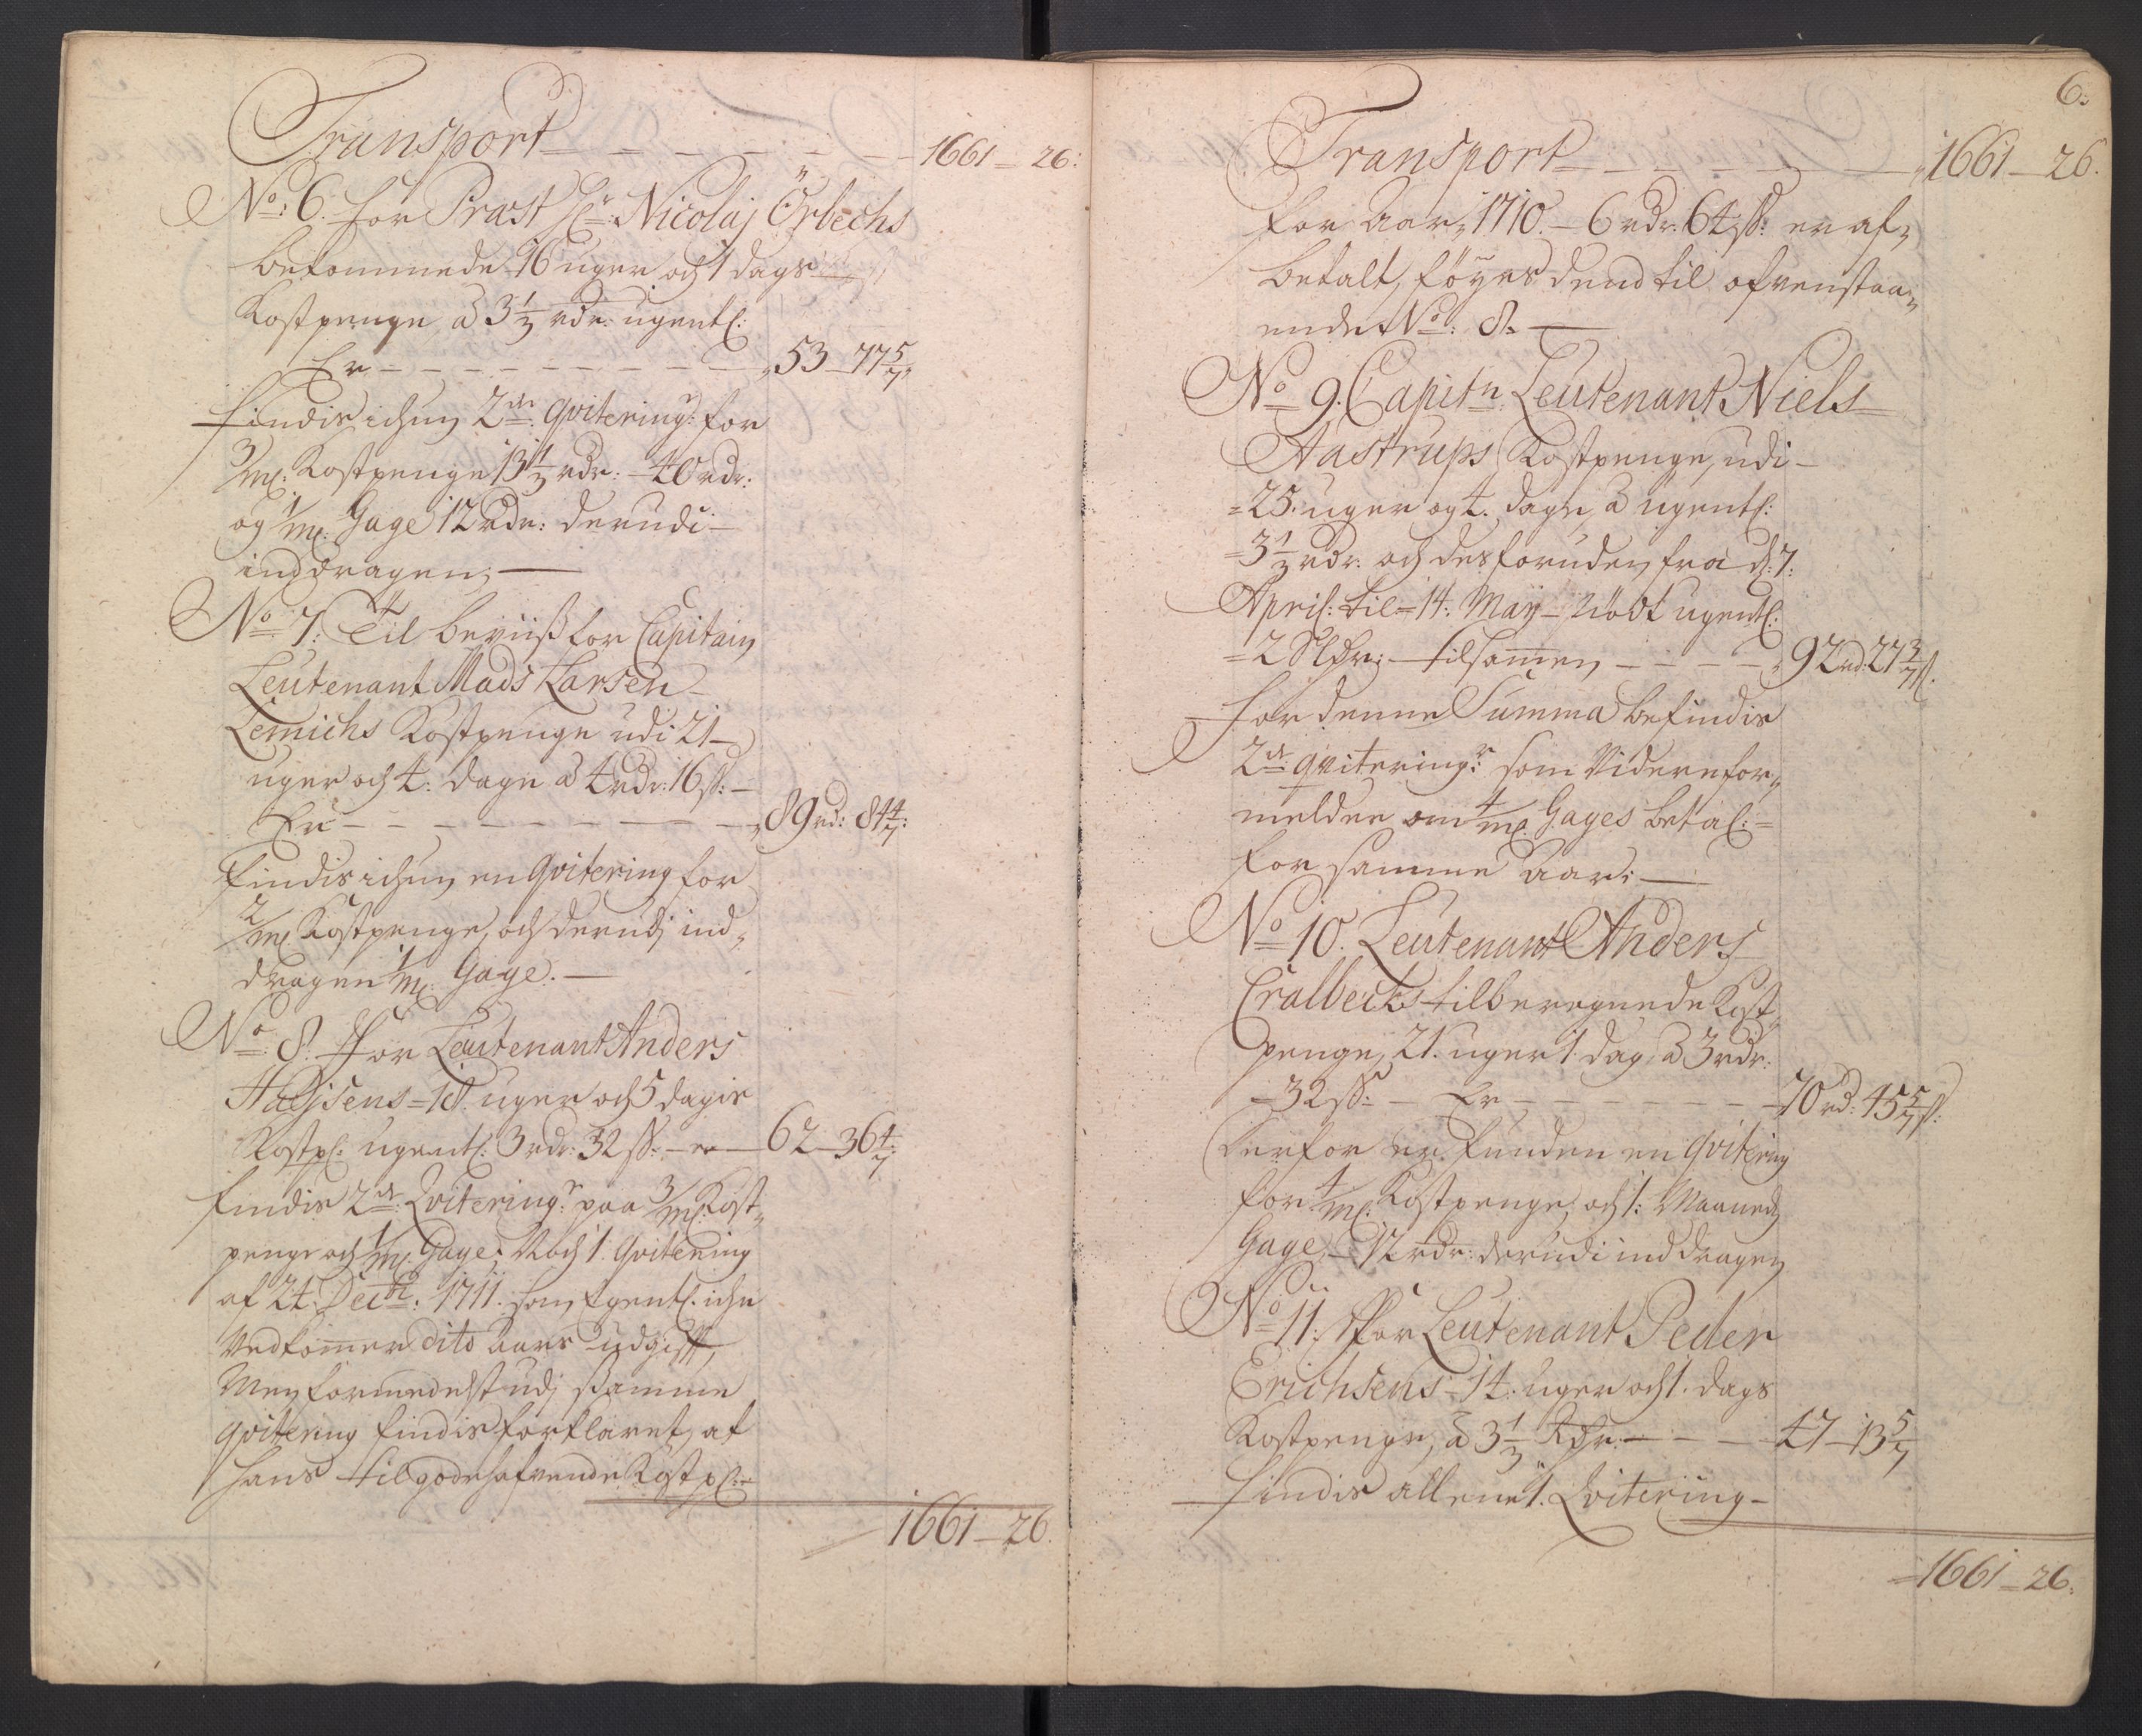 Transport — — — — — 1661 — 26:
No: 6. for Præst Hr: Nicolaj Örbechs
bekommede 16 uger och 1 dags
Kostpenge, a 3 1/3 rdr: ugentl:
Er — — — — — 53 — 77 5/7
findis ichun 2de: qvitering:r for
3/m: Kostpenge 13 1/3 rdr: — 40 rdr:
og 1/m: Gage 12 rdr: derudi
inddragen, —
No: 7: Til beviiß for Capitain
Leutenant Mads Larsen
Lemichs Kostpenge udi 21
uger och 4: dage a 4 rdr: 16 ß: —
Er — — — — — 89 rd: 84 4/7:
findis ichun en qvitering for
2/m: Kostpenge, och derudj ind„
dragen 1/m: Gage. —
No: 8: For Leutenant Anders
uger och 5 dagis
Kostp: ugentl: 3 rdr: 32 ß: — er — 62 — 36 4/7:
findis 2de: Qvitering:r paa 3/m: Kost„
penge och 1/m: Gage; Noch 1: qvitering
af 24: Decbr: 1711. som Egentl: iche
Vedkommer dito Aars udgift,
Men formedelst udj ßamme
qvitering findis forklaret, at
hans tilgodehafvende Kostp: —
1661 — 26.
6:
Transport — — — — — 1661 — 26.
for Aar 1710. — 6 rdr: 64 ß: er af„
betalt, föyes dend til ofvenstaa„
ende No: 8. —
No 9. Capitn Leutenant Niels
Aastrups Kostpenge, udi
25. uger og 4. dage, a ugentl:
3 1/3 rdr: och des foruden fra d: 7:
April: til 14: Maij — Nödt ugentl:
2 Sldr: — tilsammen — — — 92 rd: 27 3/7 ß.
For denne Summa befindis
2de qvitering:r som Videre for„
melder om 4/m: Gages betal: =
for samme Aar: —
No 10. Leutenant Anders
Cralbecks tilberegnede Kost„
penge, 21. uger 1. dag, a 3 rdr:
32 ß: — Er — — — — 70 rd: 45 5/7 ß:
Derfor er funden en qvitering
for 4/m: Kostpenge, och 1: Maaneds
Gage, — 12 rdr: derudi inddragen
No 11: For Leutenant Peder
Erichsens 14: uger och 1. dags
Kostpenge, a 3 1/3 Rdr: — — — 47 — 13 5/7
findis allene 1. Qvitering —
1661 — 26.